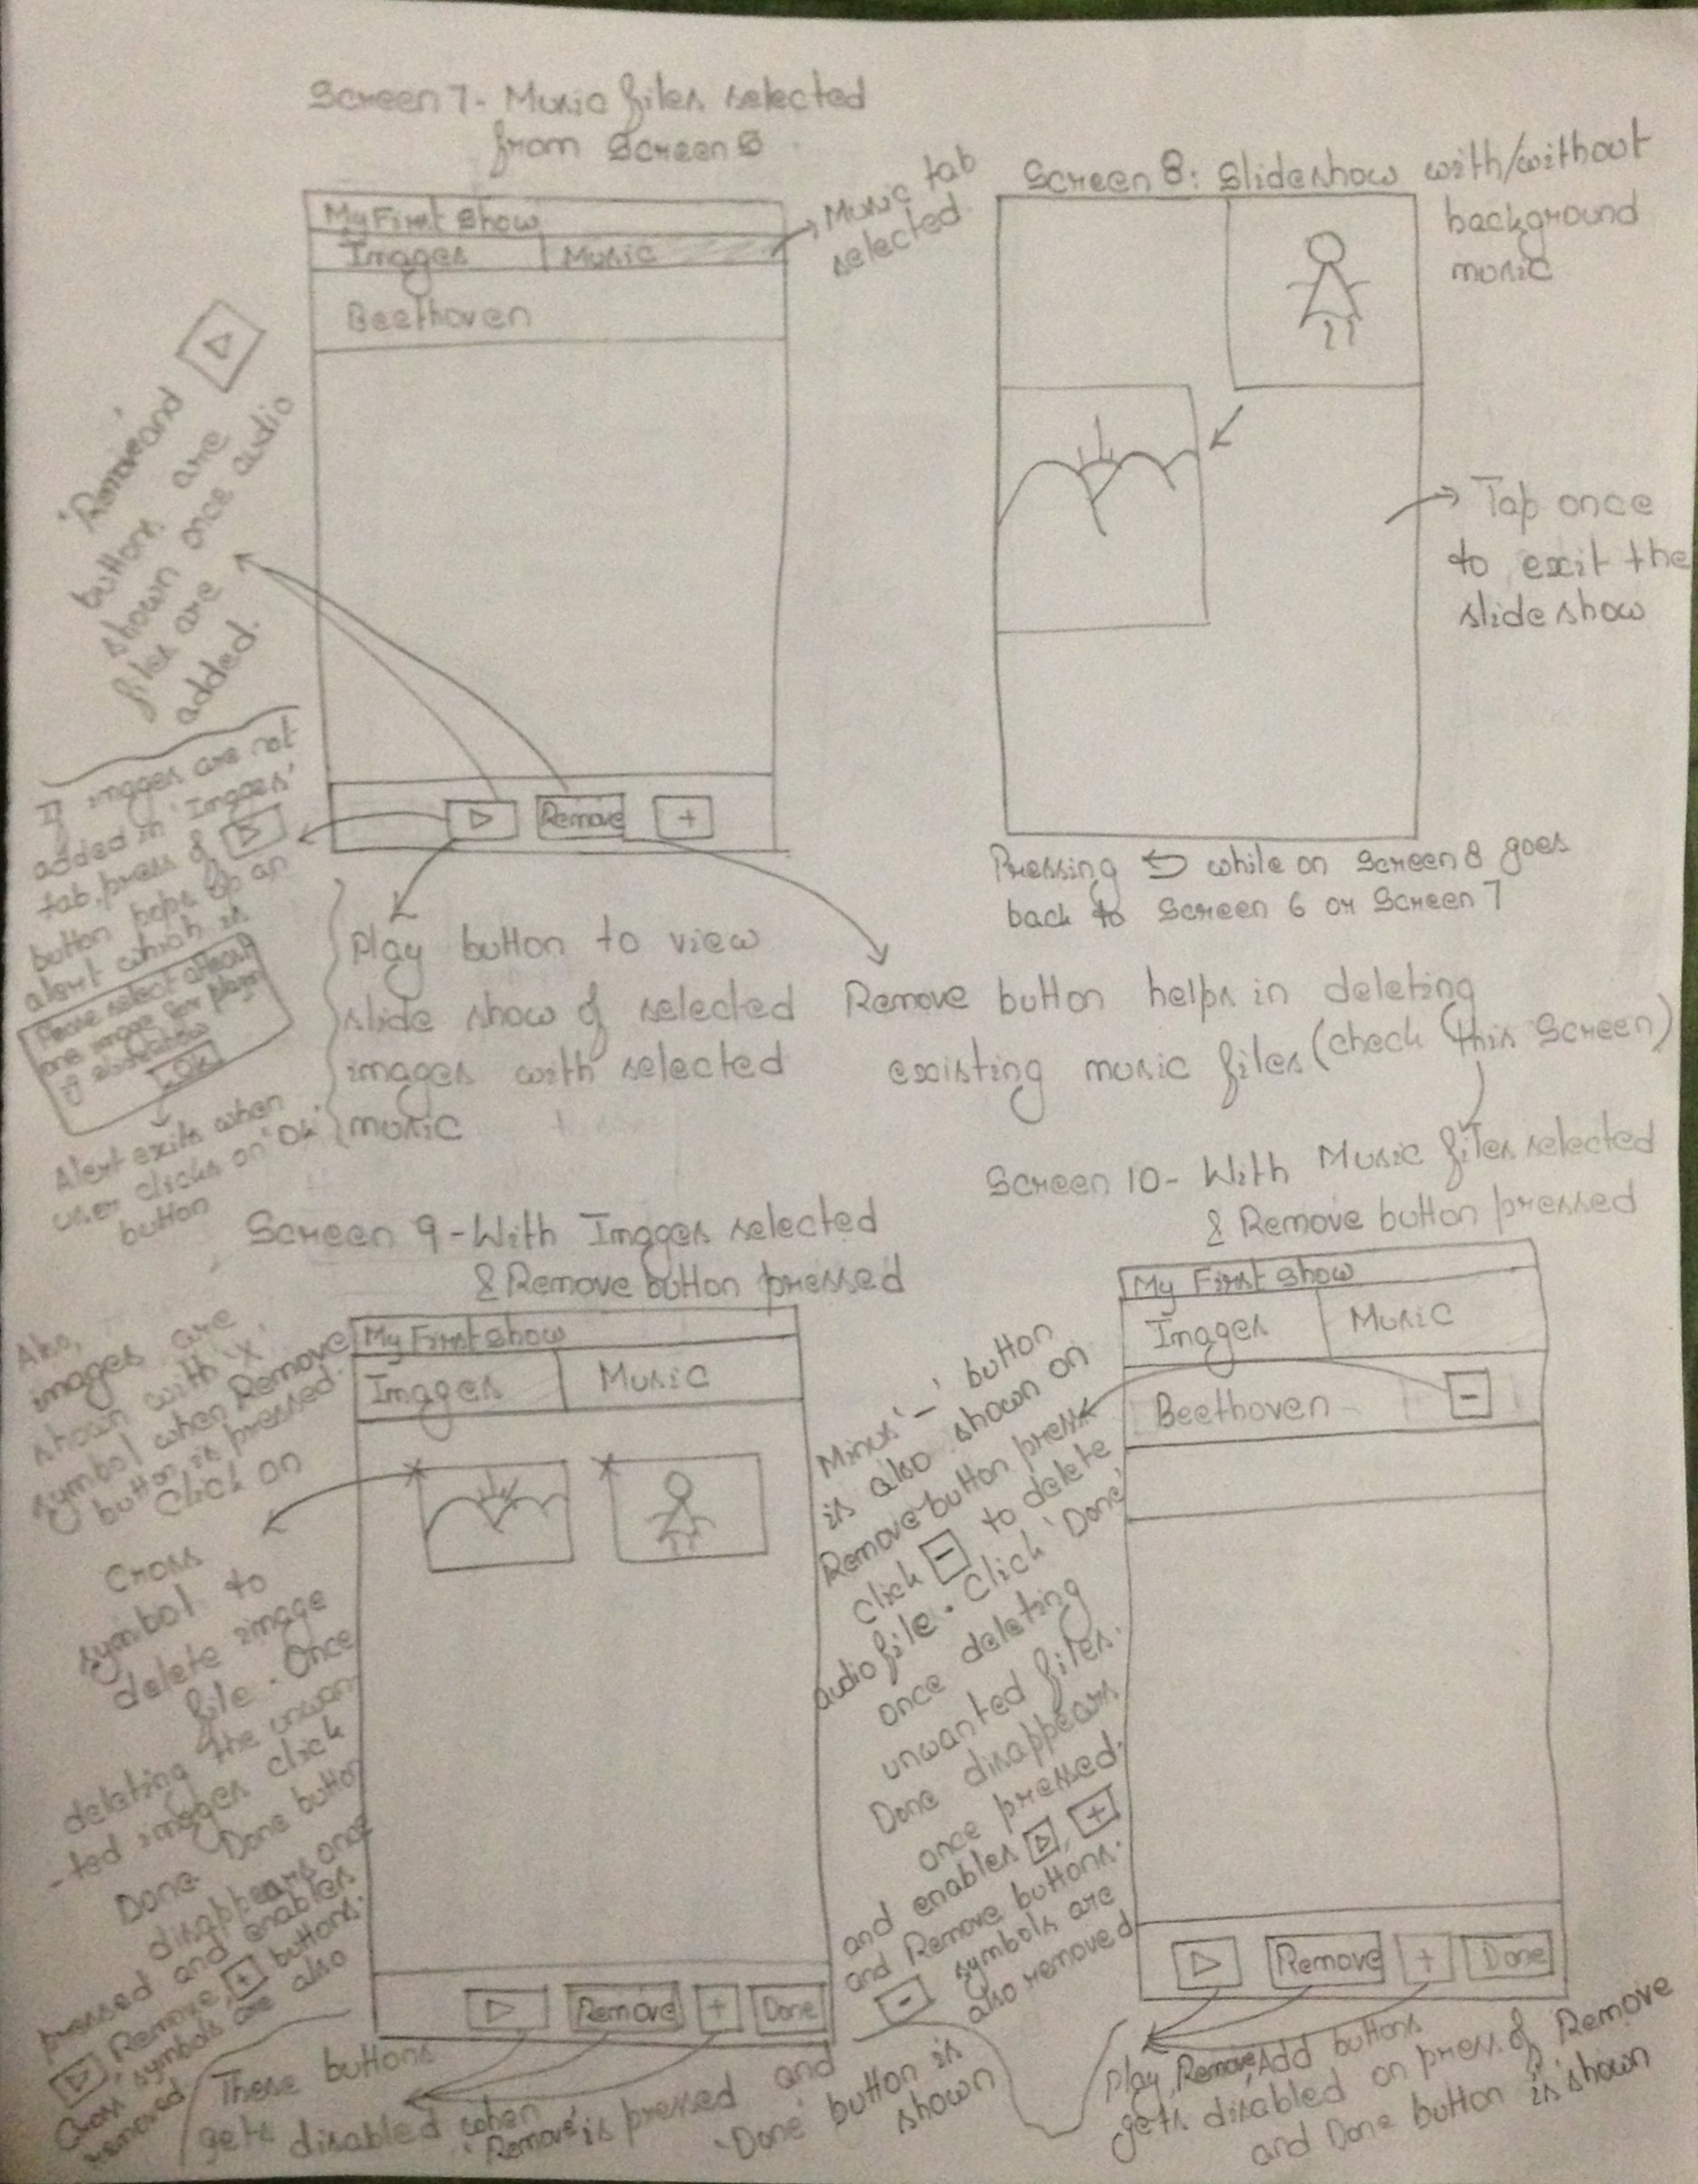 Screen 7- Music files selected
from Screen 5
My First Show
Images Music
Beethoven
→ Music tab
selected.
'Remove' and ▷
buttons are
shown once audio
files are
added.
▷ Remove +
If images are not
added in 'Images'
tab, press of ▷
button pops up an
alert which is
Please select atleast
one image for playin
g slideshow
Ok
Alert exits when
user clicks on 'Ok'
button
Play button to view
slide show of selected
images with selected
music
Remove button helps in deleting
existing music files (check this Screen)
Screen 8: Slideshow with/without
background
music
→ Tap once
to exit the
slide show
Pressing ⮌ while on Screen 8 goes
back to Screen 6 or Screen 7
Screen 9 - With Images selected
& Remove button pressed
My First Show
Images Music
Also,
images are
shown with 'X'
symbol when Remove
button is pressed.
Click on
Cross
symbol to
delete image
file. Once
deleting the unwan
-ted images click
Done. Done button
disappears once
pressed and enables
▷ Remove, + buttons.
Cross symbols are also
removed.
▷ Remove + Done
These buttons
gets disabled when
'Remove' is pressed and
'Done' button is
shown
Screen 10- With Music files selected
& Remove button pressed
My First Show
Images Music
Beethoven -
Minus '-' button
is also shown on
Remove button press
click - to delete
audio file. Click 'Done'
once deleting
unwanted files.
Done disappears
once pressed.
and enables ▷, +
and Remove buttons.
- symbols are
also removed
▷ Remove + Done
Play, Remove, Add buttons
gets disabled on press of Remove
and Done button is shown